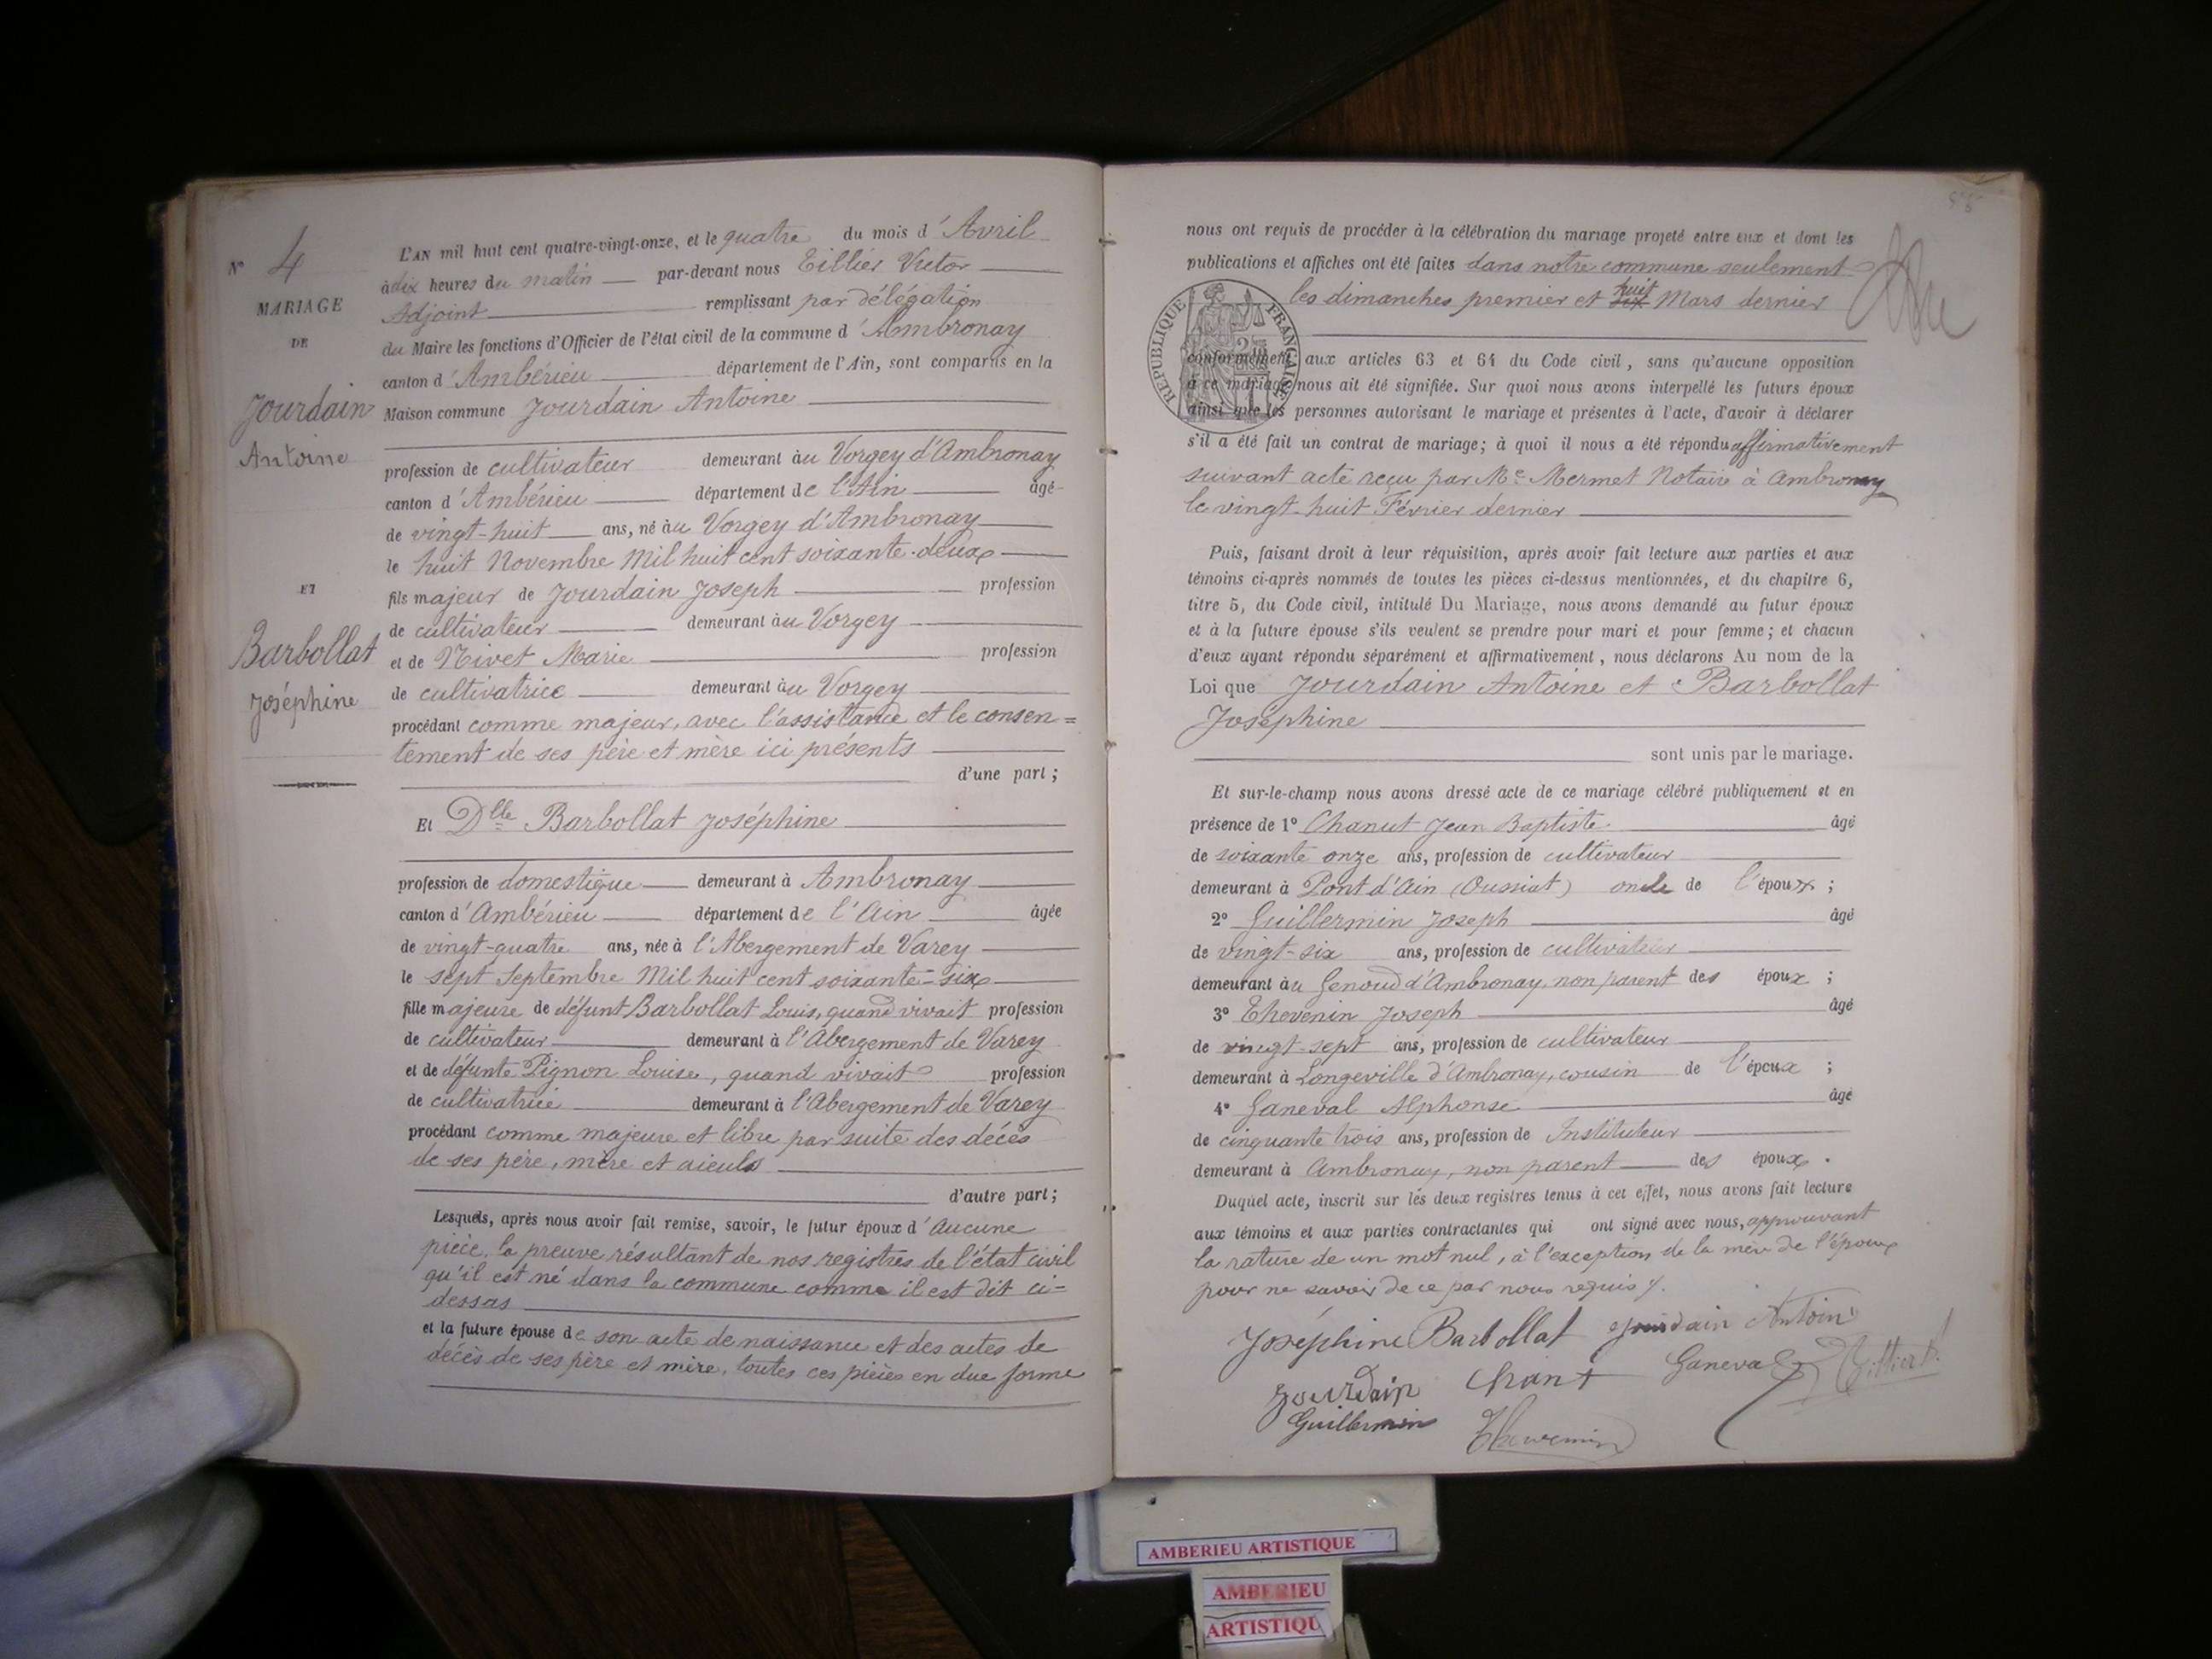 N° 4
MARIAGE
DE
Jourdain
Antoine
ET
Barbollat
Joséphine
L'AN mil huit cent quatre-vingt-onze, et le quatre du mois d'Avril
à dix heures du matin par-devant nous Tillier Victor
Adjoint remplissant par délégation
du Maire les fonctions d'Officier de l'état civil de la commune d'Ambronay
canton d'Ambérieu département de l'Ain, sont comparus en la
Maison commune Jourdain Antoine
profession de cultivateur demeurant au Vorgey d'Ambronay
canton d'Ambérieu département de l'Ain âgé
de vingt-huit ans, né au Vorgey d'Ambronay
le huit Novembre Mil huit cent soixante-deux
fils majeur de Jourdain Joseph profession
de cultivateur demeurant au Vorgey
et de Nivet Marie profession
de cultivatrice demeurant au Vorgey
procédant comme majeur, avec l'assistance et le consen=
tement de ses père et mère ici présents
d'une part;
Et Dlle Barbollat Joséphine
profession de domestique demeurant à Ambronay
canton d'Ambérieu département de l'Ain âgée
de vingt-quatre ans, née à l'Abergement de Varey
le sept Septembre Mil huit cent soixante-six
fille majeure de défunt Barbollat Louis, quand vivait profession
de cultivateur demeurant à l'Abergement de Varey
et de défunte Pignon Louise, quand vivait profession
de cultivatrice demeurant à l'Abergement de Varey
procédant comme majeure et libre par suite des décès
de ses père, mère et aieuls
d'autre part;
Lesquels, après nous avoir fait remise, savoir, le futur époux d'Aucune
pièce, la preuve résultant de nos registres de l'état civil
qu'il est né dans la commune comme il est dit ci-
dessas
et la future épouse de son acte de naissance et des actes de
décès de ses père et mère, toutes ces pièces en due forme
nous ont requis de procéder à la célébration du mariage projeté entre eux et dont les
publications et affiches ont été faites dans notre commune seulement
huit
les dimanches premier et six Mars dernier
REPUBLIQUE FRANÇAISE
conformément aux articles 63 et 64 du Code civil, sans qu'aucune opposition
à ce mariage nous ait été signifiée. Sur quoi nous avons interpellé les futurs époux
ainsi que les personnes autorisant le mariage et présentes à l'acte, d'avoir à déclarer
s'il a été fait un contrat de mariage; à quoi il nous a été répondu affirmativement
suivant acte reçu par Me Mermet Notaire à Ambronay
le vingt-huit Février dernier
Puis, faisant droit à leur réquisition, après avoir fait lecture aux parties et aux
témoins ci-après nommés de toutes les pièces ci-dessus mentionnées, et du chapitre 6,
titre 5, du Code civil, intitulé Du Mariage, nous avons demandé au futur époux
et à la future épouse s'ils veulent se prendre pour mari et pour femme; et chacun
d'eux ayant répondu séparément et affirmativement, nous déclarons Au nom de la
Loi que Jourdain Antoine et Barbollat
Joséphine
sont unis par le mariage.
Et sur-le-champ nous avons dressé acte de ce mariage célébré publiquement et en
présence de 1° Chanut Jean Baptiste âgé
de soixante onze ans, profession de cultivateur
demeurant à Pont d'Ain (Oussiat) oncle de l'époux;
2° Guillermin Joseph âgé
de vingt-six ans, profession de cultivateur
demeurant au Genoud d'Ambronay, non parent des époux;
3° Thevenin Joseph âgé
de vingt-sept ans, profession de cultivateur
demeurant à Longeville d'Ambronay, cousin de l'époux;
4° Ganeval Alphonse âgé
de cinquante trois ans, profession de Instituteur
demeurant à Ambronay, non parent des époux.
Duquel acte, inscrit sur les deux registres tenus à cet effet, nous avons fait lecture
aux témoins et aux parties contractantes qui ont signé avec nous, approuvant
la rature de un mot nul, à l'exception de la mère de l'époux
pour ne savoir de ce par nous requis
Joséphine Barbollat Jourdain Antoine
Jourdain Chanut Ganeval Tillier
Guillermin Thevenin
AMBERIEU ARTISTIQUE
AMBERIEU
ARTISTIQU